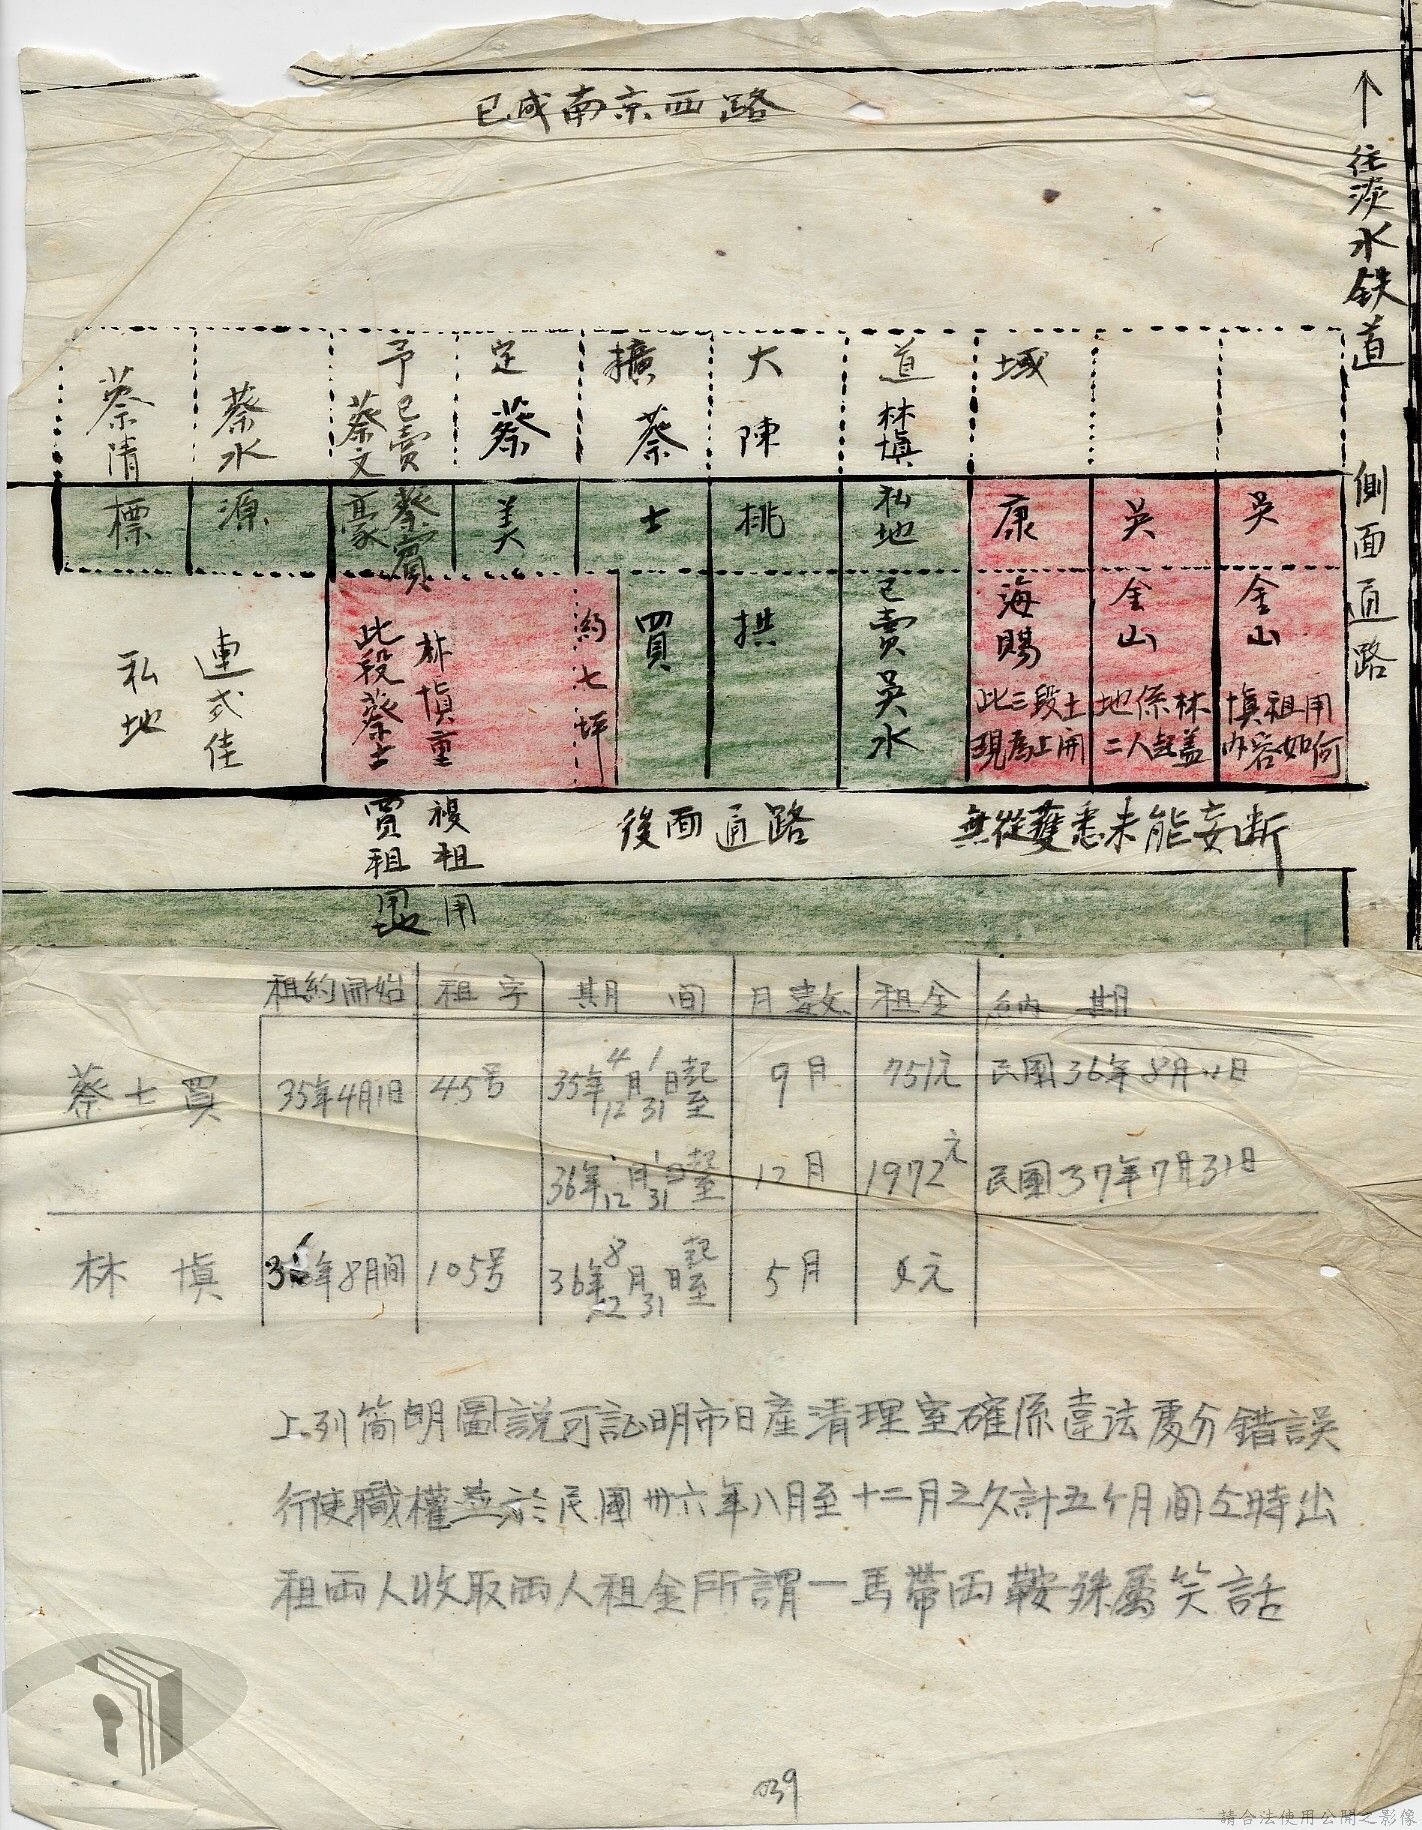 已成南京西路
↑往淡水鉄道
側面通路
予定擴大道域
蔡清標
蔡水源
蔡文豪
已賣蔡賓
蔡美
蔡士買
陳桃拱
林慎私地已賣吳水
康海賜
吳金山
吳金山
此三段土地係林慎租用
現為上開二人起蓋內容如何
無從獲悉未能妄斷
私地
連式佳
此段蔡士買租用地
林慎重複租用
約七坪
後面通路
租約開始 租字 期間 月數 租金 納期
蔡士買 35年4月1日 45号 35年4月1日起12月31日至 9月 751元 民國36年8月11日
36年1月1日起12月31日至 12月 1972元 民國37年7月31日
林慎 36年8月間 105号 36年8月1日起12月31日至 5月 元
上列簡明圖說可証明市日產清理室確係違法處分錯誤
行使職權並於民國卅六年八月至十二月之久計五ケ月間同時出
租兩人收取兩人租金所謂一馬帶兩鞍殊屬笑話
039
請合法使用公開之影像